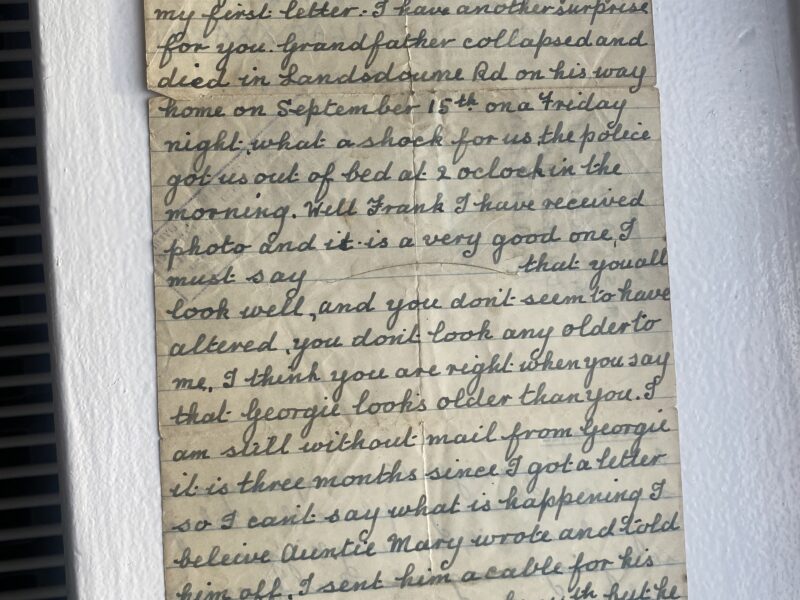 my first letter. I have another surprise
for you. Grandfather collapsed and
died in Landsdoume Rd on his way
home on September 15th on a Friday
night, what a shock for us, the police
got us out of bed at 2 oclock in the
morning. Well Frank I have received
photo and it is a very good one, I
must say that you all
look well, and you don't seem to have
altered, you don't look any older to
me, I think you are right when you say
that Georgie looks older than you. I
am still without mail from Georgie
it is three months since I got a letter
so I can't say what is happening I
beleive Auntie Mary wrote and told
him off, I sent him a cable for his
but he